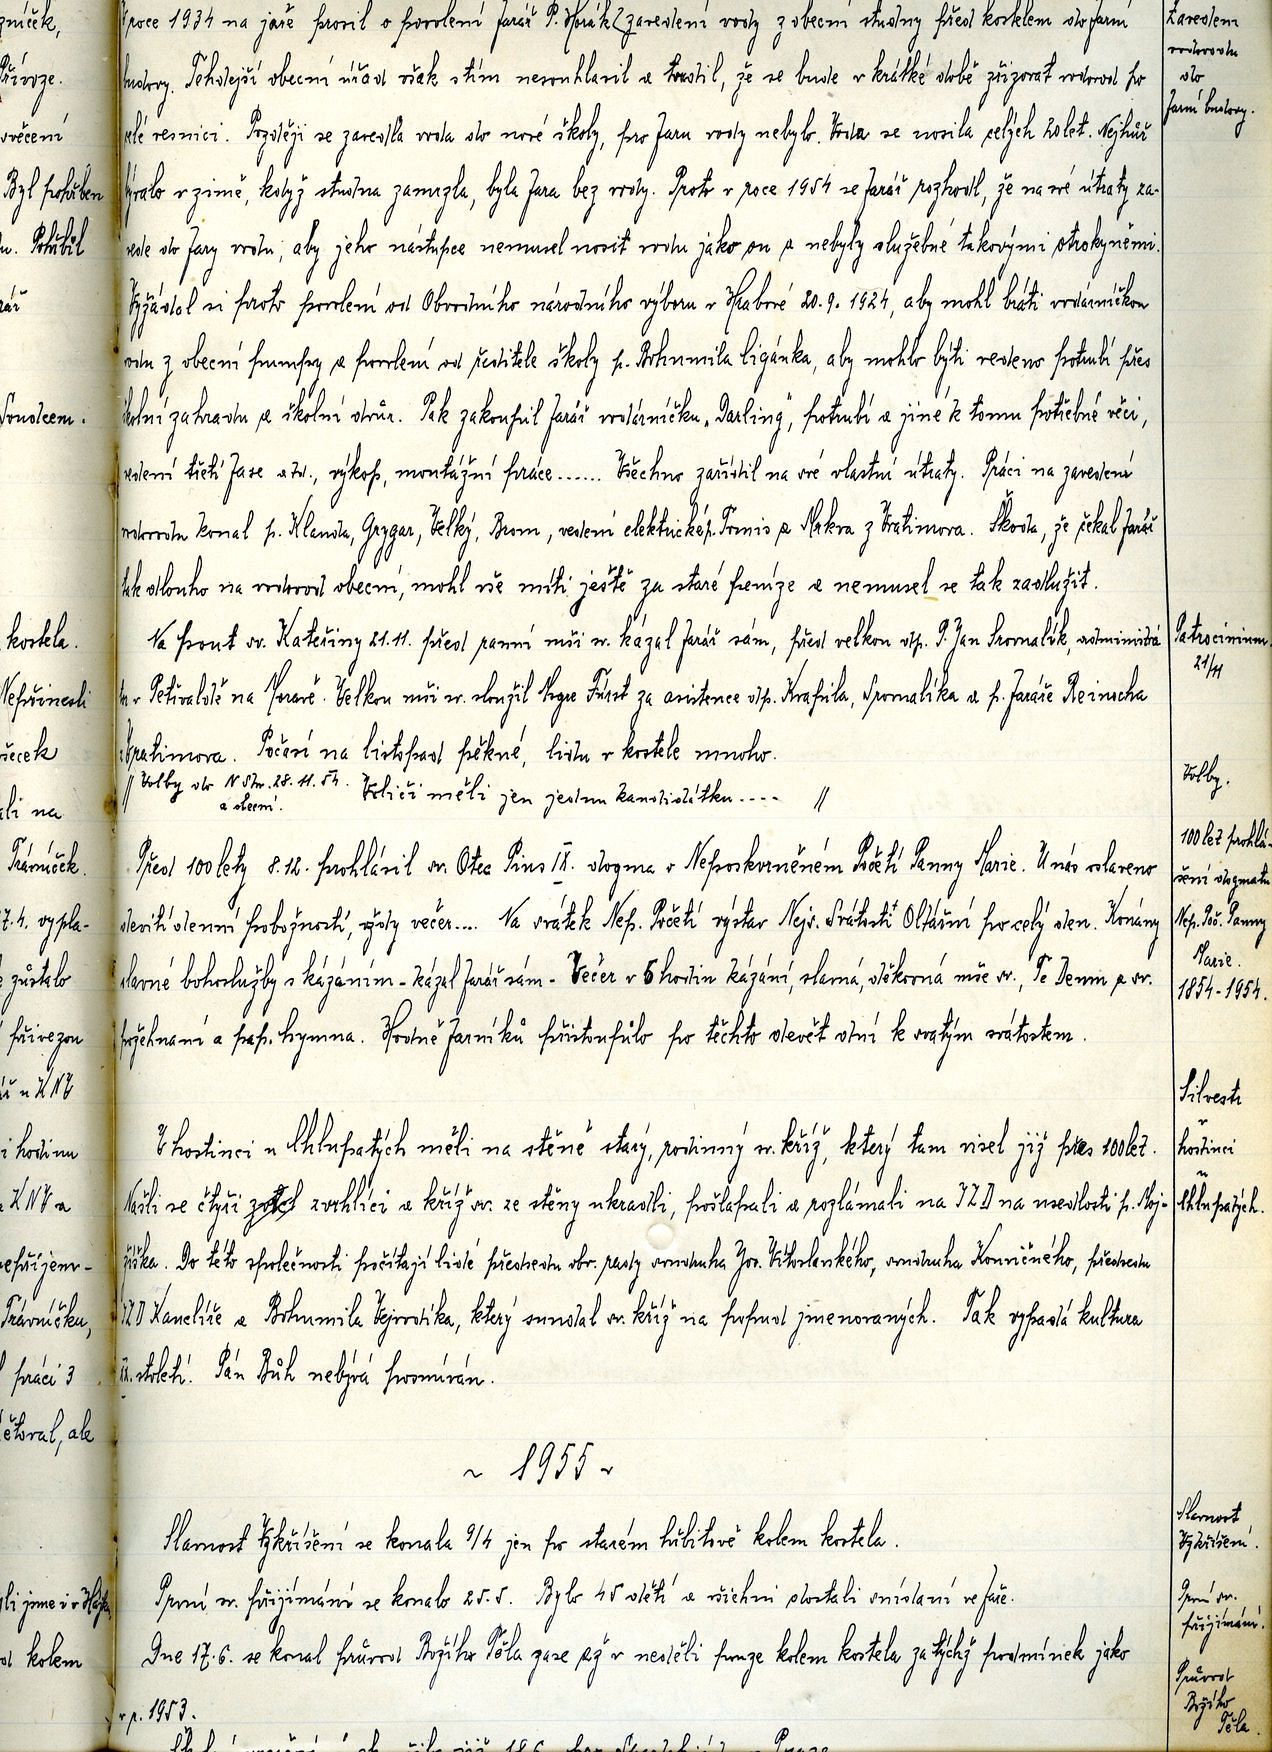 V roce 1934 na jaře prosil o povolení farář P. Horák zavedení vody z obecní studny před kostelem do farní
budovy. Tehdejší obecní úřad však s tím nesouhlasil a tvrdil, že se bude v krátké době zřizovat vodovod po
celé vesnici. Později se zavedla voda do nové školy, pro faru vody nebylo. Voda se nosila celých 20 let. Nejhůř
bývalo v zimě, když studna zamrzla, byla fara bez vody. Proto v roce 1954 se farář rozhodl, že na své útraty za-
vede do fary vodu, aby jeho nástupce nemusel nosit vodu jako on a nebyly služebné takovými otrokyněmi.
Vyžádal si proto povolení od Obvodního národního výboru v Hrabové 20.9.1924, aby mohl bráti vodárničkou
vodu z obecní pumpy a povolení od ředitele školy p. Bohumila Ligánka, aby mohlo býti vedeno potrubí přes
školní zahradu a školní dvůr. Pak zakoupil farář vodárničku „Darling", potrubí a jiné k tomu potřebné věci,
vedení třetí fase atd., výkop, montážní práce...... Všechno zařídil na své vlastní útraty. Práci na zavedení
vodovodu konal p. Klanda, Grygar, Velký, Brom, vedení elektrické p. Tomis a Mrkva z Vratimova. Škoda, že čekal farář
tak dlouho na vodovod obecní, mohl vše míti ještě za staré peníze a nemusel se tak zadlužit.
Na pouť sv. Kateřiny 21.11. před ranní mši sv. kázal farář sám, před velkou dp. P. Jan Sromalík, administrá-
tor v Petřvaldě na Moravě. Velkou mši sv. sloužil Msgre Fürst za asistence dp. Krapila, Sromalíka a p. faráře Reinscha
z Vratimova. Počasí na listopad pěkné, lidu v kostele mnoho.
// Volby do N Shr. 28.11.54. Voliči měli jen jednu kandidátku.... //
a obecní.
Před 100 lety 8.12. prohlásil sv. Otec Pius IX. dogma o Neposkvrněném Početí Panny Marie. U nás oslaveno
devíti denní pobožností, vždy večer.... Na svátek Nep. Početí výstav Nejsv. Svátosti Oltářní po celý den. Konány
slavné bohoslužby s kázáním - kázal farář sám - Večer v 5 hodin kázání, slavná, děkovná mše sv., Te Deum a sv.
požehnání a pap. hymna. Hodně farníků přistoupilo po těchto devět dní k svatým svátostem.
V hostinci u Chlupatých měli na stěně starý, rodinný sv. kříž, který tam visel již přes 100 let.
Našli se čtyři zvrhlíci a kříž sv. ze stěny ukradli, pošlapali a rozlámali na JZD na usedlosti p. Moj-
žíška. Do této společnosti počítají lidé předsedu obv. rady soudruha Jos. Vitoslavského, soudruha Konvičného, předsedu
JZD Kanclíře a Bohumila Vejrostka, který sundal sv. kříž na popud jmenovaných. Tak vypadá kultura
XX. století. Pán Bůh nebývá posmíván.
~ 1955 ~
Slavnost Vzkříšení se konala 9/4 jen po starém hřbitově kolem kostela.
První sv. přijímání se konalo 25.5. Bylo 45 dětí a všichni dostali snídani ve faře.
Dne 17.6. se konal průvod Božího Těla zase až v neděli pouze kolem kostela za týchž podmínek jako
v r. 1953.
Zavedení
vodovodu
do
farní budovy.
Patrocinium.
21/11
Volby.
100 let prohlá-
šení dogmatu
Nep. Poč. Panny
Marie.
1854-1954.
Silvestr
v
hostinci
u
Chlupatých.
Slavnost
Vzkříšení.
První sv.
přijímání.
Průvod
Božího
Těla.
zníček,
Přívoze.
svěcení
Byl pohřben
Pohřbil
kostela.
Nepřinesli
Trávníček.
7.4. vypla-
zůstalo
přivezou
u KNV
i hodinu
KNV a
nepříjem-
Trávníčku,
práci 3
ětoval, ale
kolem